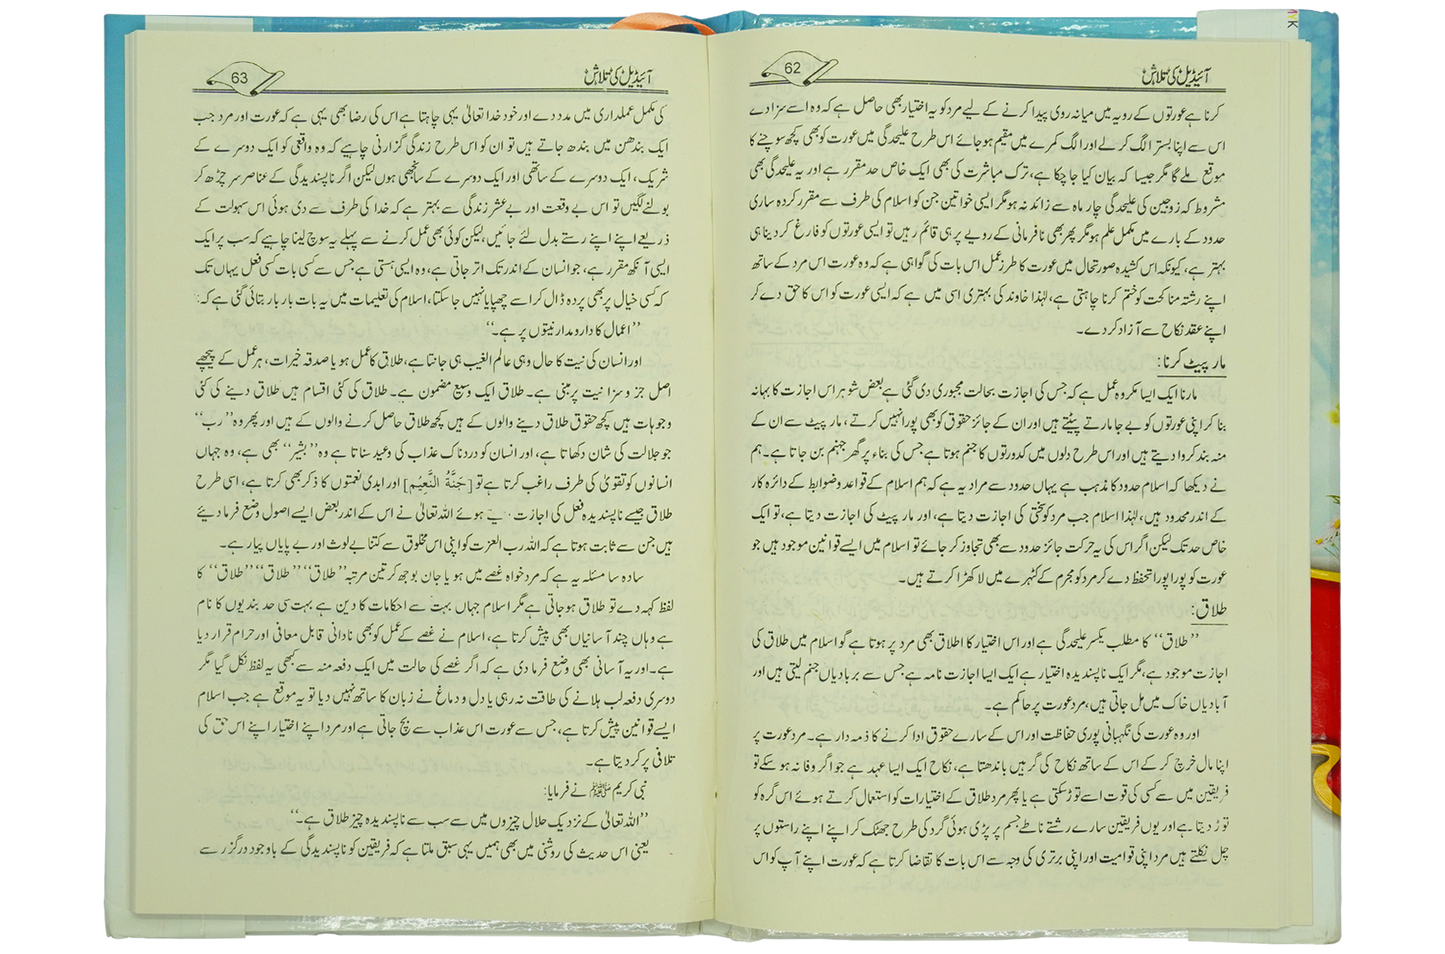 آئیڈیل کی تلاش
62
کرنا ہے عورتوں کے رویہ میں میانہ روی پیدا کرنے کے لیے مرد کو یہ اختیار بھی حاصل ہے کہ وہ اسے سزا دے
اس سے اپنا بستر الگ کرلے اور الگ کمرے میں مقیم ہو جائے اس طرح علیحدگی میں عورت کو بھی کچھ سوچنے کا
موقع ملے گا مگر جیسا کہ بیان کیا جا چکا ہے، ترک مباشرت کی بھی ایک خاص حد مقرر ہے اور یہ علیحدگی بھی
مشروط کہ زوجین کی علیحدگی چار ماہ سے زائد نہ ہو مگر ایسی خواتین جن کو اسلام کی طرف سے مقرر کردہ ساری
حدود کے بارے میں مکمل علم ہو مگر پھر بھی نافرمانی کے رویے پر ہی قائم رہیں تو ایسی عورتوں کو فارغ کر دینا ہی
بہتر ہے، کیونکہ اس کشیدہ صورتحال میں عورت کا طرز عمل اس بات کی گواہی ہے کہ وہ عورت اس مرد کے ساتھ
اپنے رشتہ مناکحت کو ختم کرنا چاہتی ہے، لہٰذا خاوند کی بہتری اسی میں ہے کہ ایسی عورت کو اس کا حق دے کر
اپنے عقد نکاح سے آزاد کر دے۔
مار پیٹ کرنا:
مارنا ایک ایسا مکروہ عمل ہے کہ جس کی اجازت بحالت مجبوری دی گئی ہے بعض شوہر اس اجازت کا بہانہ
بنا کر اپنی عورتوں کو بے جا مارتے پیٹتے ہیں اور ان کے جائز حقوق کو بھی پورا نہیں کرتے، مار پیٹ سے ان کے
منہ بند کروا دیتے ہیں اور اس طرح دلوں میں کدورتوں کا جنم ہوتا ہے جس کی بناء پر گھر جہنم بن جاتا ہے۔ ہم
نے دیکھا کہ اسلام حدود کا مذہب ہے یہاں حدود سے مراد یہ ہے کہ ہم اسلام کے قواعد و ضوابط کے دائرہ کار
کے اندر محدود ہیں، لہٰذا اسلام جب مرد کو سختی کی اجازت دیتا ہے، اور مار پیٹ کی اجازت دیتا ہے، تو ایک
خاص حد تک لیکن اگر اس کی یہ حرکت جائز حدود سے بھی تجاوز کر جائے تو اسلام میں ایسے قوانین موجود ہیں جو
عورت کو پورا پورا تحفظ دے کر مرد کو مجرم کے کٹہرے میں لا کھڑا کرتے ہیں۔
طلاق:
’’طلاق‘‘ کا مطلب یکسر علیحدگی ہے اور اس اختیار کا اطلاق بھی مرد پر ہوتا ہے گو اسلام میں طلاق کی
اجازت موجود ہے، مگر ایک ناپسندیدہ اختیار ہے ایک ایسا اجازت نامہ ہے جس سے بربادیاں جنم لیتی ہیں اور
آبادیاں خاک میں مل جاتی ہیں، مرد عورت پر حاکم ہے۔
اور وہ عورت کی نگہبانی پوری حفاظت اور اس کے سارے حقوق ادا کرنے کا ذمہ دار ہے۔ مرد عورت پر
اپنا مال خرچ کر کے اس کے ساتھ نکاح کی گرہیں باندھتا ہے، نکاح ایک ایسا عہد ہے جو اگر وفا نہ ہو سکے تو
فریقین میں سے کسی کی قوت اسے توڑ سکتی ہے یا پھر مرد طلاق کے اختیارات کو استعمال کرتے ہوئے اس گرہ کو
توڑ دیتا ہے اور یوں فریقین سارے رشتے ناطے جسم پر پڑی ہوئی گرد کی طرح جھٹک کر اپنے اپنے راستوں پر
چل نکلتے ہیں مرد اپنی قوامیت اور اپنی برتری کی وجہ سے اس بات کا تقاضا کرتا ہے کہ عورت اپنے آپ کو اس
آئیڈیل کی تلاش
63
کی مکمل عملداری میں مدد دے اور خود خدا تعالیٰ یہی چاہتا ہے اس کی رضا بھی یہی ہے کہ عورت اور مرد جب
ایک بندھن میں بندھ جاتے ہیں تو ان کو اس طرح زندگی گزارنی چاہیے کہ وہ واقعی کو ایک دوسرے کے
شریک، ایک دوسرے کے ساتھی اور ایک دوسرے کے سانجھی ہوں لیکن اگر ناپسندیدگی کے عناصر سر چڑھ کر
بولنے لگیں تو اس بے وقعت اور بے عشر زندگی سے بہتر ہے کہ خدا کی طرف سے دی ہوئی اس سہولت کے
ذریعے اپنے اپنے رستے بدل لئے جائیں، لیکن کوئی بھی عمل کرنے سے پہلے یہ سوچ لینا چاہیے کہ سب پر ایک
ایسی آنکھ مقرر ہے، جو انسان کے اندر تک اتر جاتی ہے، وہ ایسی ہستی ہے جس سے کسی بات کسی فعل یہاں تک
کہ کسی خیال پر بھی پردہ ڈال کر اسے چھپایا نہیں جا سکتا، اسلام کی تعلیمات میں یہ بات بار بار بتائی گئی ہے کہ:
’’اعمال کا دارومدار نیتوں پر ہے۔‘‘
اور انسان کی نیت کا حال وہی عالم الغیب ہی جانتا ہے، طلاق کا عمل ہو یا صدقہ خیرات، ہر عمل کے پیچھے
اصل جزو سزا نیت پر مبنی ہے۔ طلاق ایک وسیع مضمون ہے۔ طلاق کی کئی اقسام ہیں طلاق دینے کی کئی
وجوہات ہیں کچھ حقوق طلاق دینے والوں کے ہیں کچھ طلاق حاصل کرنے والوں کے ہیں اور پھر وہ ’’رب‘‘
جو جلالت کی شان دکھاتا ہے، اور انسان کو دردناک عذاب کی وعید سناتا ہے وہ ’’بشیر‘‘ بھی ہے، وہ جہاں
انسانوں کو تقویٰ کی طرف راغب کرتا ہے تو [جَنَّةُ النَّعِيْم] اور ابدی نعمتوں کا ذکر بھی کرتا ہے، اسی طرح
طلاق جیسے ناپسندیدہ فعل کی اجازت ہوئے اللہ تعالیٰ نے اس کے اندر بعض ایسے اصول وضع فرما دیئے
ہیں جن سے ثابت ہوتا ہے کہ اللہ رب العزت کو اپنی اس مخلوق سے کتنا بے لوث اور بے پایاں پیار ہے۔
سادہ سا مسئلہ یہ ہے کہ مرد خواہ غصے میں ہو یا جان بوجھ کر تین مرتبہ ’’طلاق‘‘ ’’طلاق‘‘ ’’طلاق‘‘ کا
لفظ کہہ دے تو طلاق ہو جاتی ہے مگر اسلام جہاں بہت سے احکامات کا دین ہے بہت سی حد بندیوں کا نام
ہے وہاں چند آسانیاں بھی پیش کرتا ہے، اسلام نے غصے کے عمل کو بھی نادانی قابل معافی اور حرام قرار دیا
ہے۔ اور یہ آسانی بھی وضع فرما دی ہے کہ اگر غصے کی حالت میں ایک دفعہ منہ سے کبھی یہ لفظ نکل گیا مگر
دوسری دفعہ لب ہلانے کی طاقت نہ رہی یا دل و دماغ نے زبان کا ساتھ نہیں دیا تو یہ موقع ہے جب اسلام
ایسے قوانین پیش کرتا ہے، جس سے عورت اس عذاب سے بچ جاتی ہے اور مرد اپنے اختیار اپنے اس حق کی
تلافی پر کر دیتا ہے۔
نبی کریم ﷺ نے فرمایا:
’’اللہ تعالیٰ کے نزدیک حلال چیزوں میں سے سب سے ناپسندیدہ چیز طلاق ہے۔‘‘
یعنی اس حدیث کی روشنی میں بھی ہمیں یہی سبق ملتا ہے کہ فریقین کو ناپسندیدگی کے باوجود درگزر سے